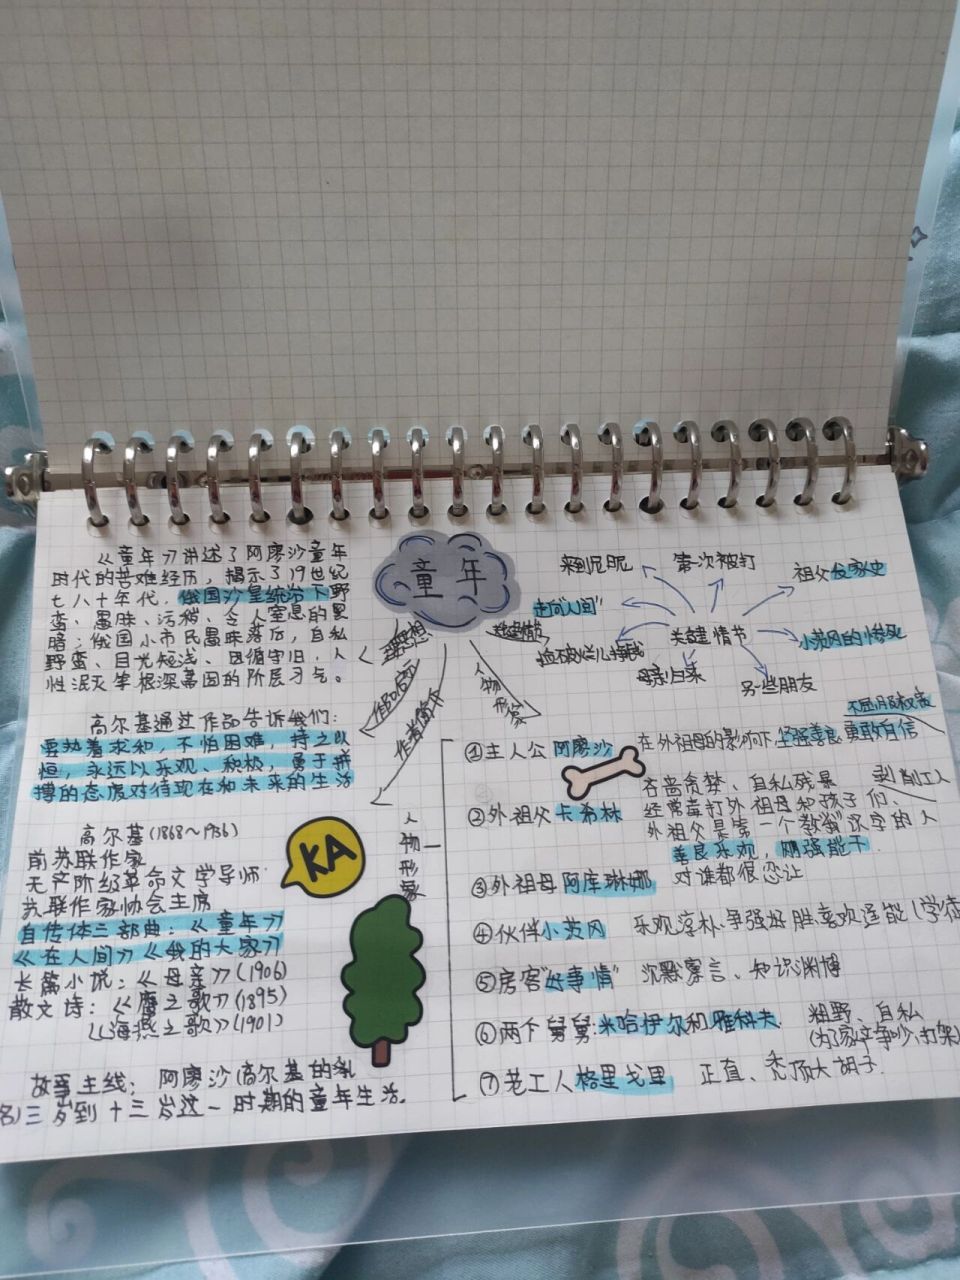 童年
《童年》讲述了阿廖沙童年
时代的苦难经历，揭示了19世纪
七八十年代，俄国沙皇统治下野
蛮、愚昧、污秽、令人窒息的黑
暗；俄国小市民愚昧落后，自私
野蛮、目光短浅、因循守旧，人
性泯灭等根深基固的阶层习气。
高尔基通过作品告诉我们：
要热着求和，不怕困难，持之以
恒，永远以乐观、积极，勇于拼
搏的态度对待现在和未来的生活
高尔基(1868～1936)
前苏联作家
无产阶级革命文学导师
苏联作家协会主席
自传体三部曲：《童年》
《在人间》《我的大家》
长篇小说：《母亲》(1906)
散文诗：《鹰之歌》(1895)
《海燕之歌》(1901)
故事主线：阿廖沙(高尔基的乳
名)三岁到十三岁这一时期的童年生活。
KA
作者简介
关键情节
来到尼
第一次被打
祖父发家史
小茨冈的惨死
另一些朋友
母亲归来
走向"人间"
人物形象
人物形象
①主人公 阿廖沙 在外祖母的影响下 坚强善良 勇敢自信
不屈服
②外祖父 卡希林
吝啬贪婪、自私残暴
剥削工人
经常毒打外祖母和孩子们、
外祖父是第一个教"我"识字的人
③外祖母 阿库琳娜
善良乐观，刚强能干
对谁都很忍让
④伙伴小茨冈 乐观淳朴、争强好胜喜欢逞能(学徒
⑤房客"好事情" 沉默寡言、知识渊博
⑥两个舅舅：米哈伊尔和雅科夫 粗野、自私
(为了家产争吵、打架)
⑦老工人格里戈里 正直、秃顶大胡子.